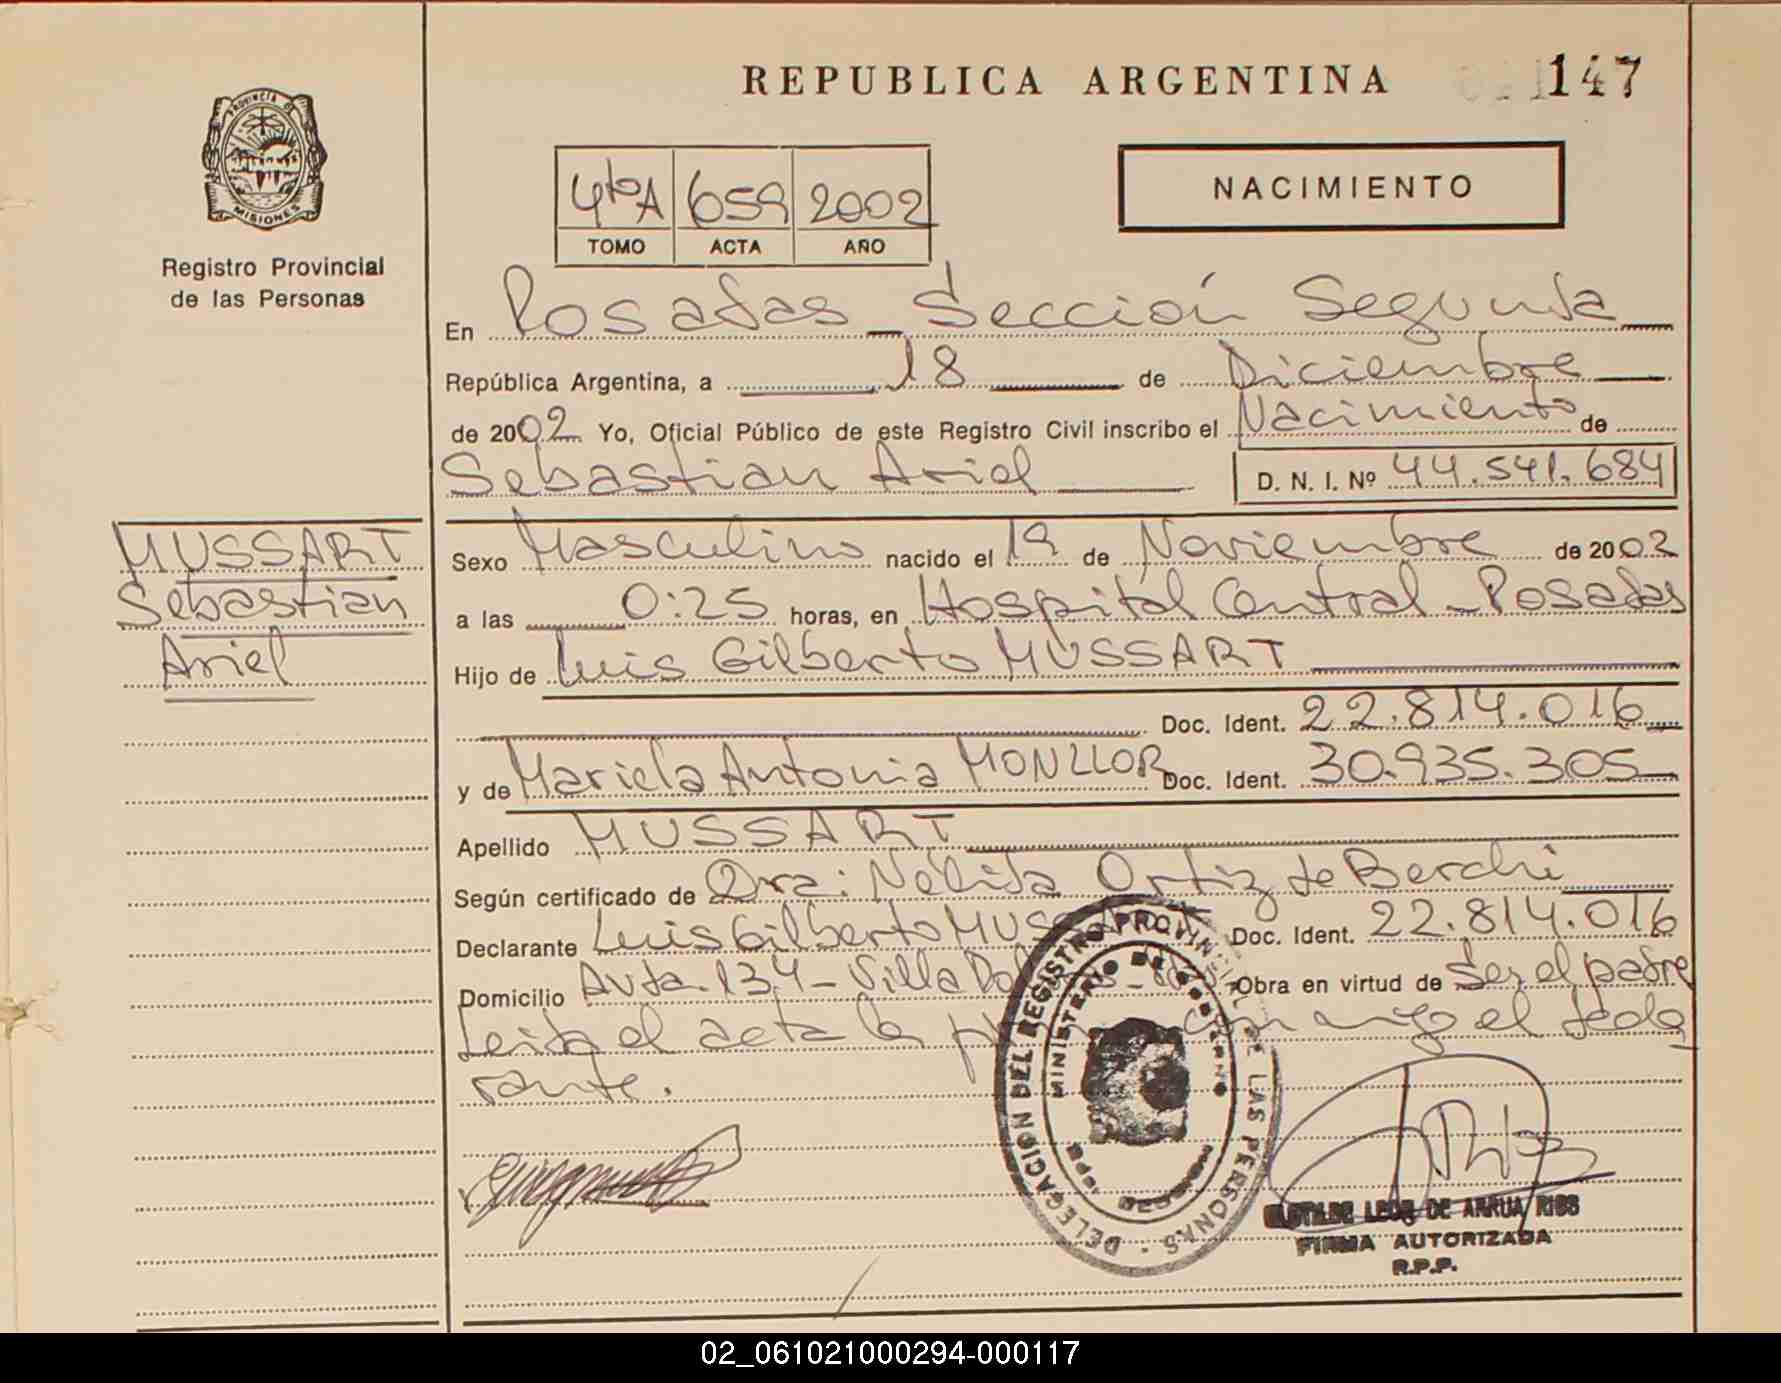 REPUBLICA ARGENTINA 147
PROVINCIA DE
MISIONES
Registro Provincial
de las Personas
4to A 659 2002
TOMO ACTA AÑO
NACIMIENTO
En Posadas Sección Segunda
República Argentina, a 18 de Diciembre
de 2002 Yo, Oficial Público de este Registro Civil inscribo el Nacimiento de
Sebastian Ariel D. N. I. Nº 44.541.684
MUSSART
Sebastian
Ariel
Sexo Masculino nacido el 19 de Noviembre de 2002
a las 0:25 horas, en Hospital Central - Posadas
Hijo de Luis Gilberto MUSSART
Doc. Ident. 22.814.016
y de Mariela Antonia MONLLOR Doc. Ident. 30.935.305
Apellido MUSSART
Según certificado de Dra: Nélida Ortiz de Berchi
Declarante Luis Gilberto MUSSART Doc. Ident. 22.814.016
Domicilio Avda. 134 - Villa Obra en virtud de Ser el padre
Leida el acta la conmigo el decla
rante.
DELEGACION DEL REGISTRO PROVINCIAL DE LAS PERSONAS
MINISTERIO DE GOBIERNO
LEON DE ARRUA RIOS
FIRMA AUTORIZADA
R.P.P.
02_061021000294-000117